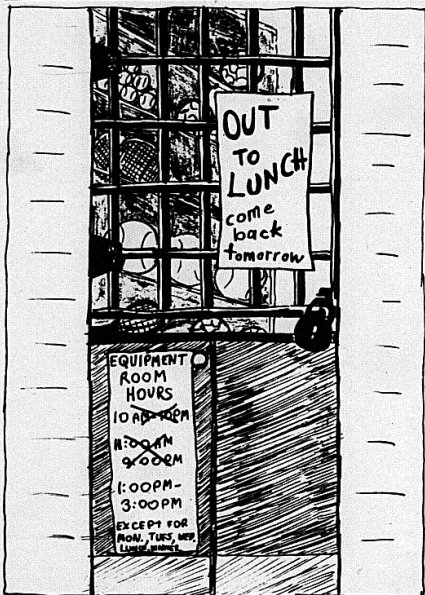 OUT
TO
LUNCH
come
back
tomorrow
EQUIPMENT
ROOM
HOURS
10 AM-10PM
11:00 AM
9:00PM
1:00PM-
3:00PM
EXCEPT FOR
MON. TUES, WED,
LUNCH, DINNER